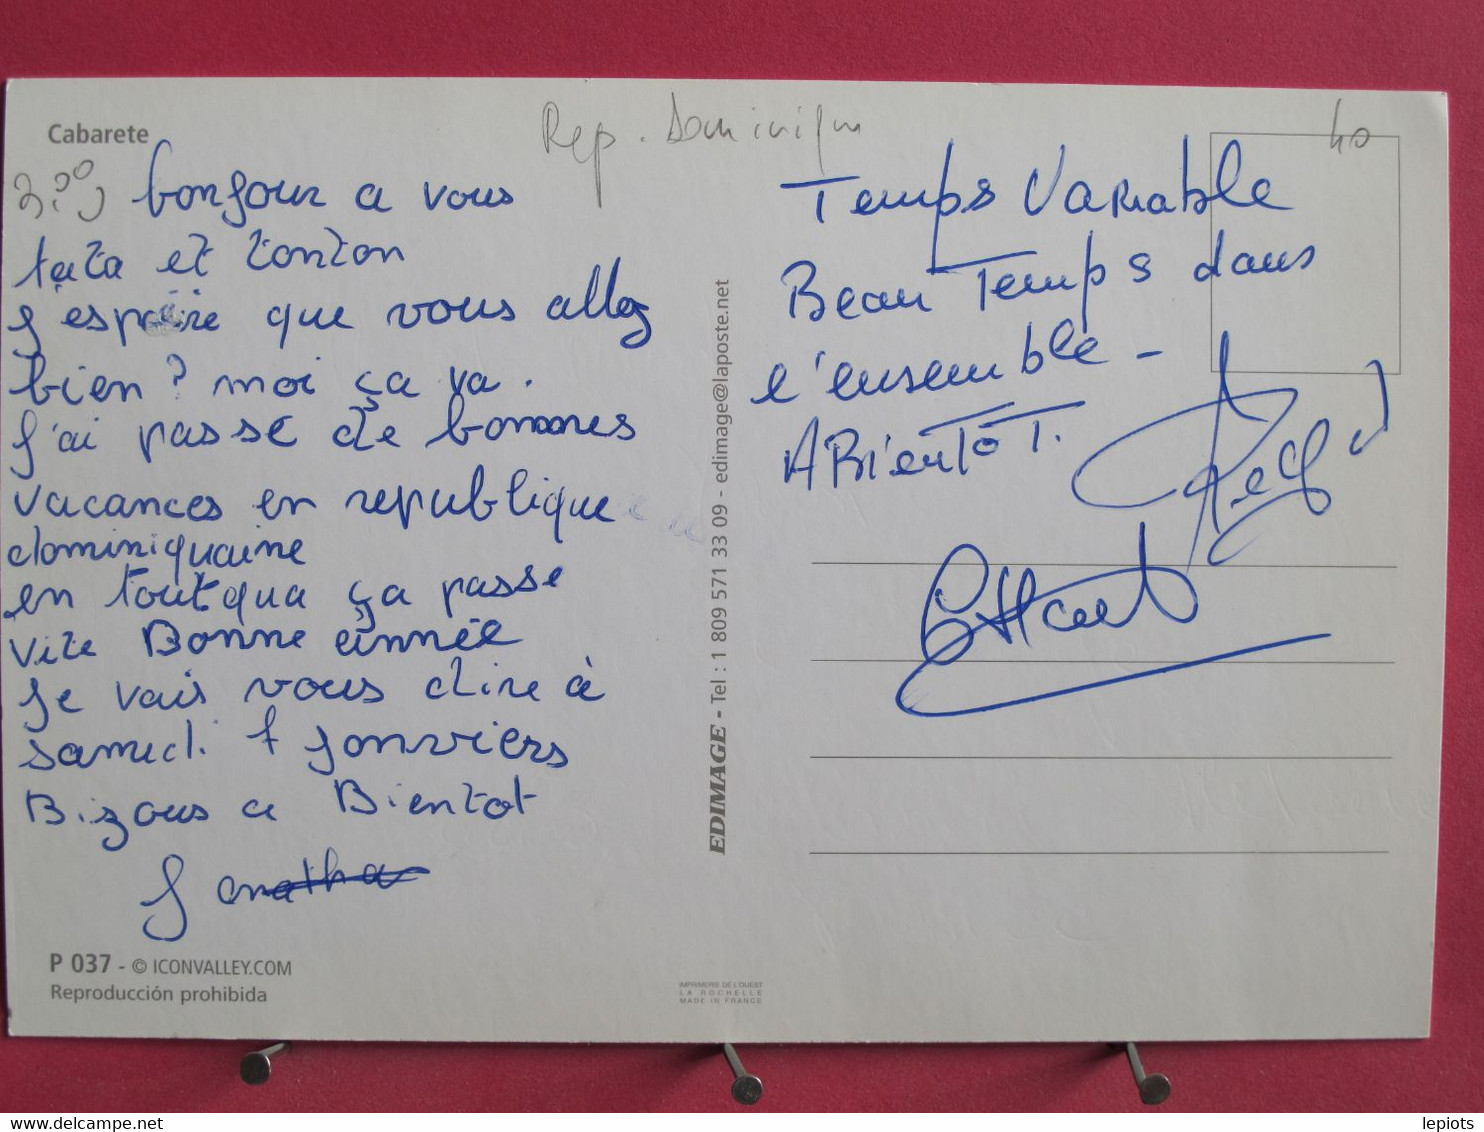 Cabarete
Rep. Dominiqu
40
bonjour a vous
tata et tonton
j'espère que vous allez
bien? moi ça va.
J'ai passé de bonnes
vacances en republique
dominiquaine
en toutqua ça passe
vite Bonne année
Je vais vous dire à
samedi 7 Jonviers
Bizous a Bientot
Jonatha
P 037 - © ICONVALLEY.COM
Reproducción prohibida
EDIMAGE - Tel : 1 809 571 33 09 - edimage@laposte.net
IMPRIMERIE DE L'OUEST
LA ROCHELLE
MADE IN FRANCE
Temps Variable
Beau Temps dans
l'ensemble -
A BientôT.
lepiots